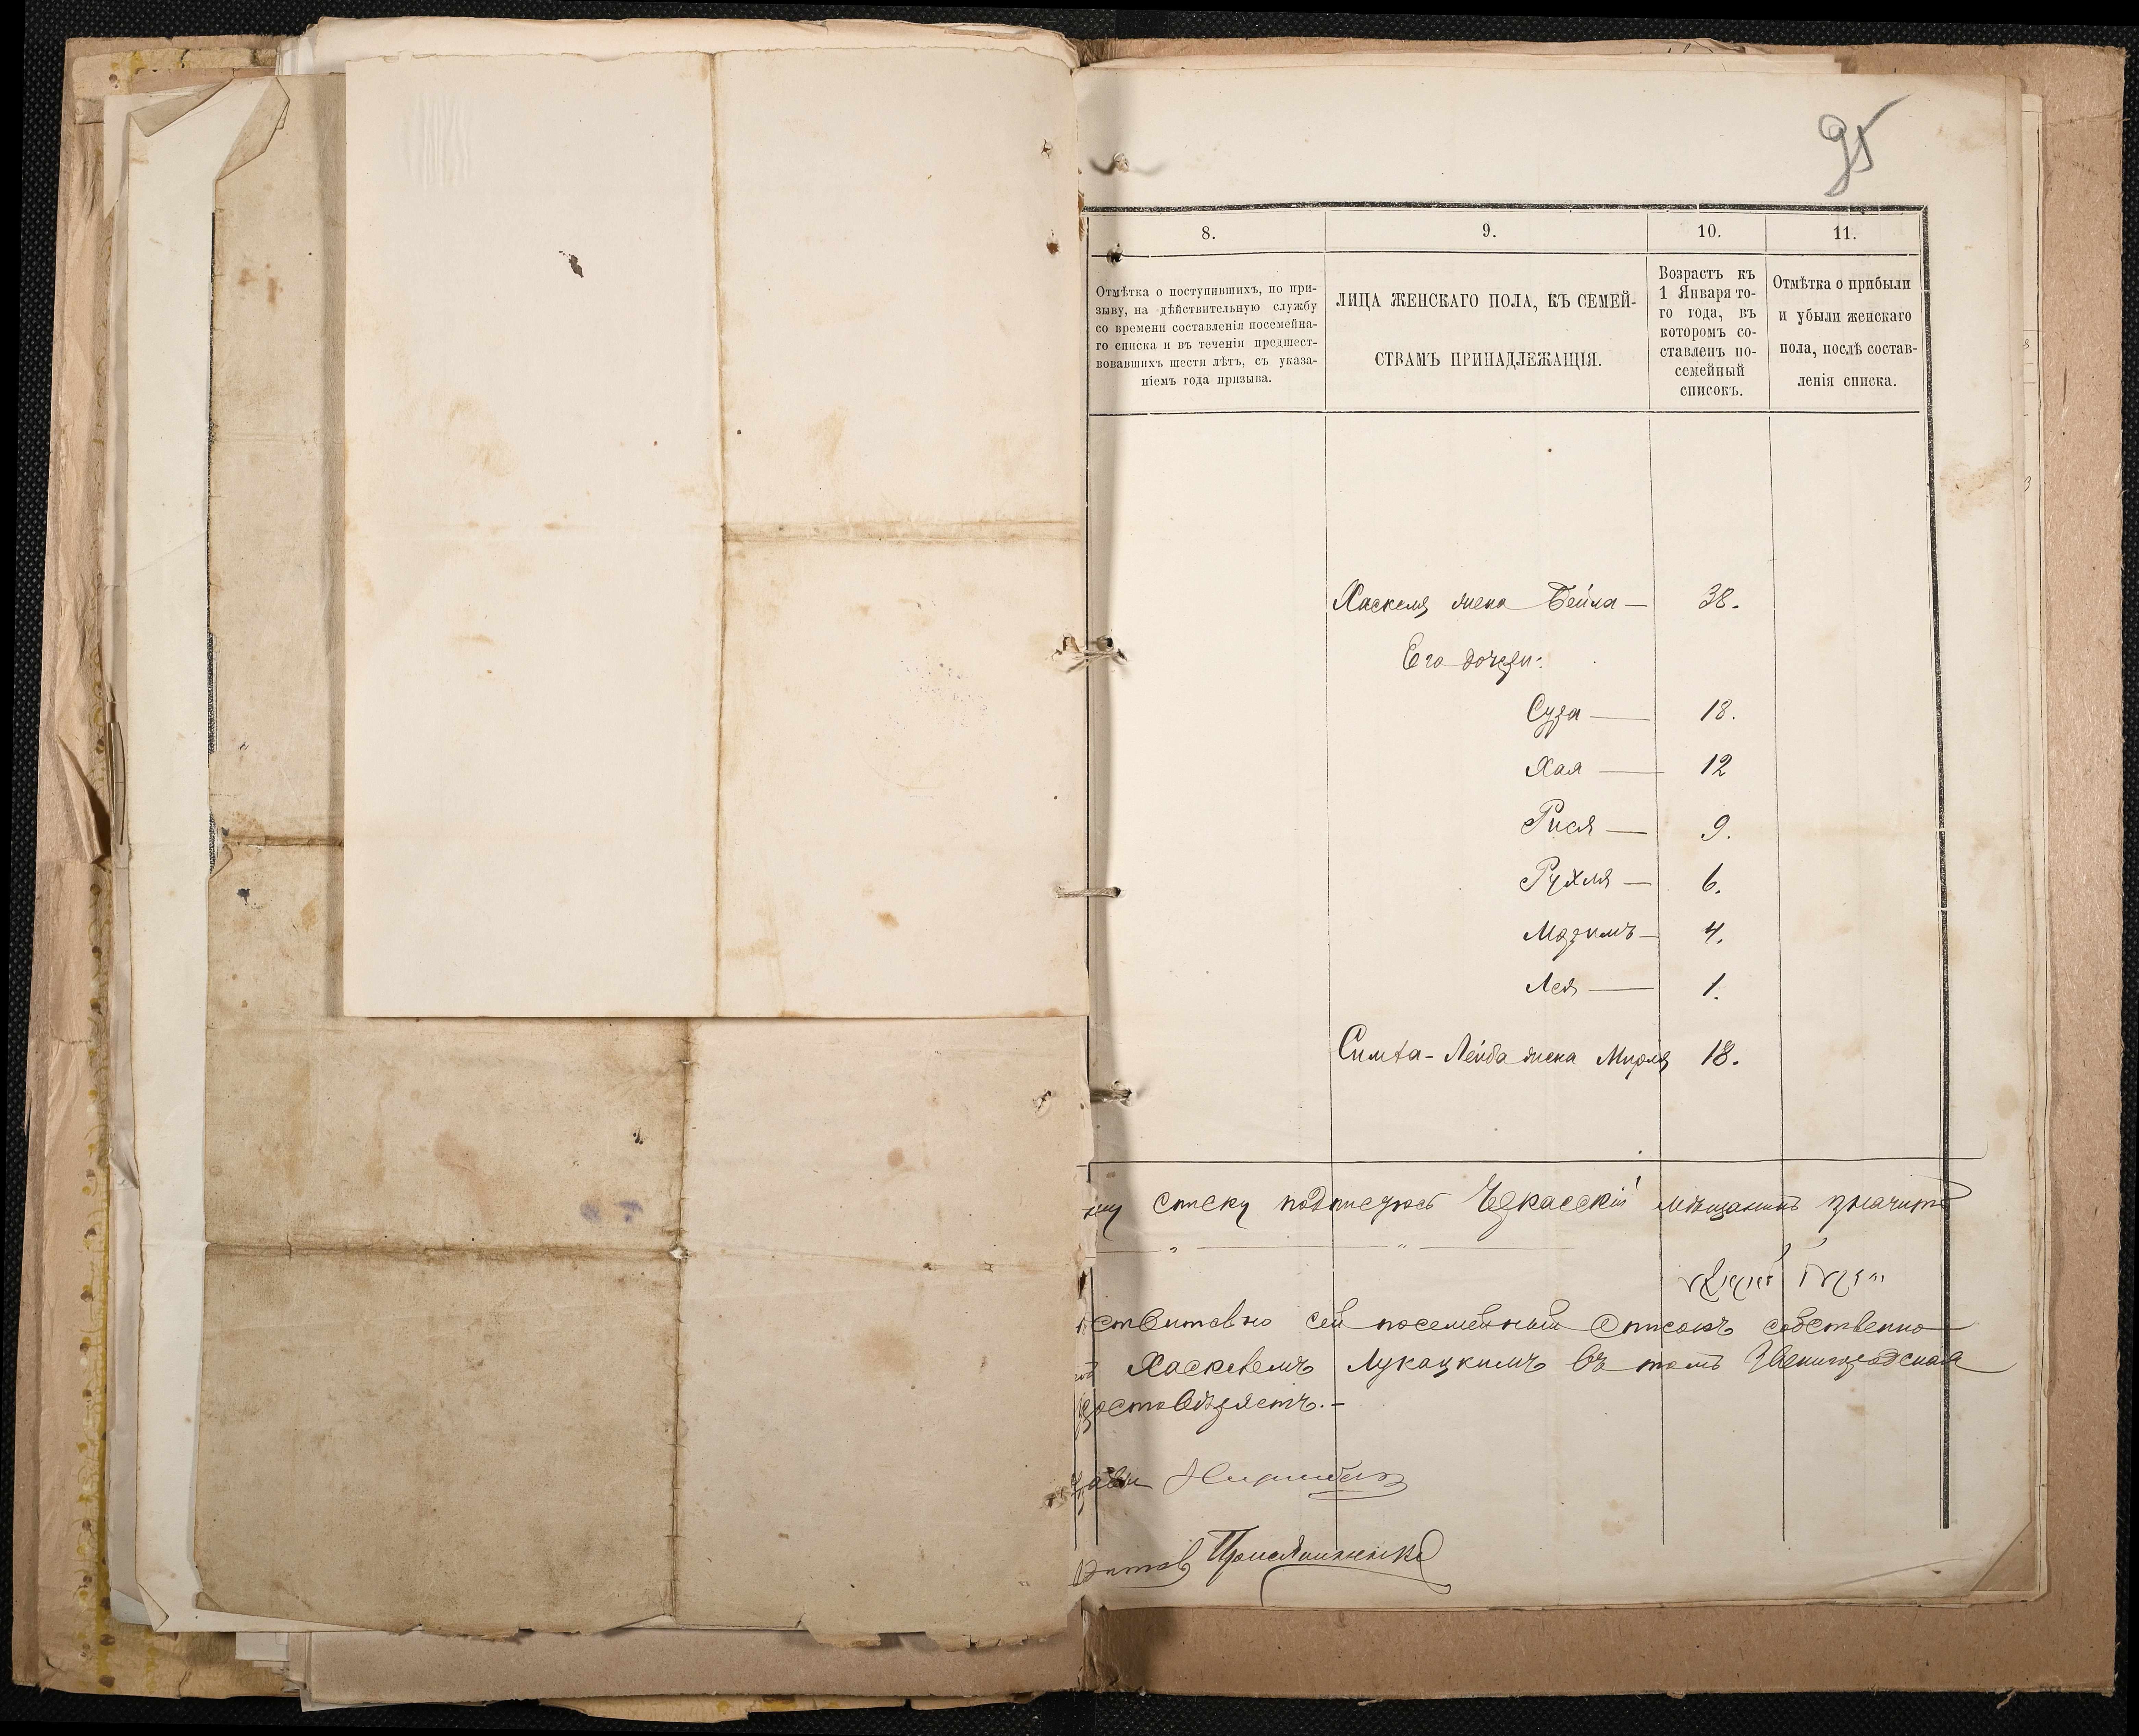 95
8.
9.
10.
11.
Отмѣтка о поступившихъ, по при-
зыву, на дѣйствительную службу
со времени составленія посемейна-
го списка и въ теченіи предшест-
вовавшихъ шести лѣтъ, съ указа-
ніемъ года призыва.
ЛИЦА ЖЕНСКАГО ПОЛА, КЪ СЕМЕЙ-
СТВАМЪ ПРИНАДЛЕЖАЩІЯ.
Возрастъ къ
1 Января то-
го года, въ
которомъ со-
ставленъ по-
семейный
списокъ.
Отмѣтка о прибыли
и убыли женскаго
пола, послѣ состав-
ленія списка.
Хаскеля жена Бейла — 38.
Его дочери:
Сура — 18.
Хая — 12
Рися — 9.
Рухля — 6.
4.
Лея — 1.
Симха-Лейба жена Мирля 18.
списку подписуюсь Черкасскій мѣщанинъ значитъ
сей посемейный списокъ собственно
Хаскелемъ Лукацкимъ въ томъ Звенигородская